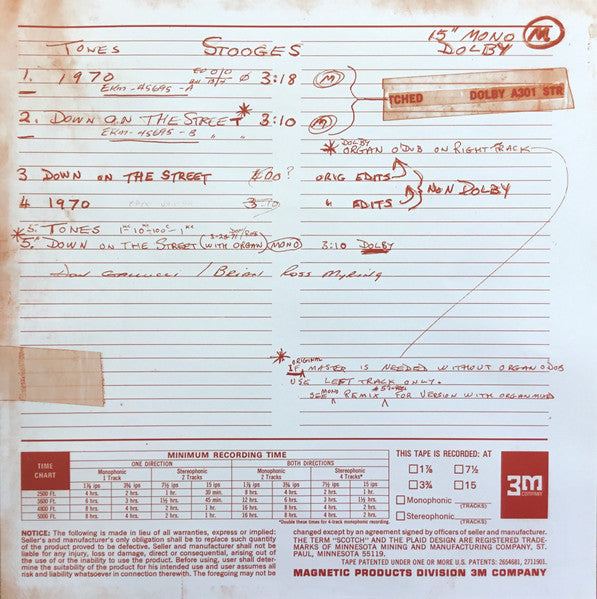 TONES STOOGES 15" MONO DOLBY M
1. 1970 3:18 M
EKM-45695-A
TCHED DOLBY A301 STR
2. DOWN ON THE STREET * 3:10 M
EKM-45695-B " "
* DOLBY ORGAN O'DUB ON RIGHT TRACK
3 DOWN ON THE STREET ORIG EDITS
NON DOLBY
4 1970 " EDITS
*5. TONES
5. DOWN ON THE STREET (WITH ORGAN) MONO 3:10 DOLBY
DON GALLUCCI / BRIAN ROSS MYRING
* ORIGINAL
IF MASTER IS NEEDED WITHOUT ORGAN O'DUB
USE LEFT TRACK ONLY.
SEE MONO REMIX FOR VERSION WITH ORGAN
TIME CHART
MINIMUM RECORDING TIME
ONE DIRECTION BOTH DIRECTIONS
Monophonic 1 Track Stereophonic 2 Tracks Monophonic 2 Tracks Stereophonic 4 Tracks*
1⅞ ips 3¾ ips 7½ ips 15 ips 1⅞ ips 3¾ ips 7½ ips 15 ips
2500 Ft. 4 hrs. 2 hrs. 1 hr. 30 min. 8 hrs. 4 hrs. 2 hrs. 1 hr.
3600 Ft. 6 hrs. 3 hrs. 1½ hrs. 45 min. 12 hrs. 6 hrs. 3 hrs. 1½ hrs.
4800 Ft. 8 hrs. 4 hrs. 2 hrs. 1 hr. 16 hrs. 8 hrs. 4 hrs. 2 hrs.
5000 Ft. 8 hrs. 4 hrs. 2 hrs. 1 hr. 16 hrs. 8 hrs. 4 hrs. 2 hrs.
*Double these times for 4-track monophonic recording.
THIS TAPE IS RECORDED: AT
1⅞ 7½
3¾ 15
Monophonic
(TRACKS)
Stereophonic
(TRACKS)
3M
COMPANY
NOTICE: The following is made in lieu of all warranties, express or implied:
Seller's and manufacturer's only obligation shall be to replace such quantity
of the product proved to be defective. Seller and manufacturer shall not be
liable for any injury, loss or damage, direct or consequential, arising out of
the use of or the inability to use the product. Before using, user shall deter-
mine the suitability of the product for his intended use and user assumes all
risk and liability whatsoever in connection therewith. The foregoing may not be
changed except by an agreement signed by officers of seller and manufacturer.
THE TERM "SCOTCH" AND THE PLAID DESIGN ARE REGISTERED TRADE-
MARKS OF MINNESOTA MINING AND MANUFACTURING COMPANY, ST.
PAUL, MINNESOTA 55119.
TAPE PATENTED UNDER ONE OR MORE U.S. PATENTS: 2654681, 2711901.
MAGNETIC PRODUCTS DIVISION 3M COMPANY